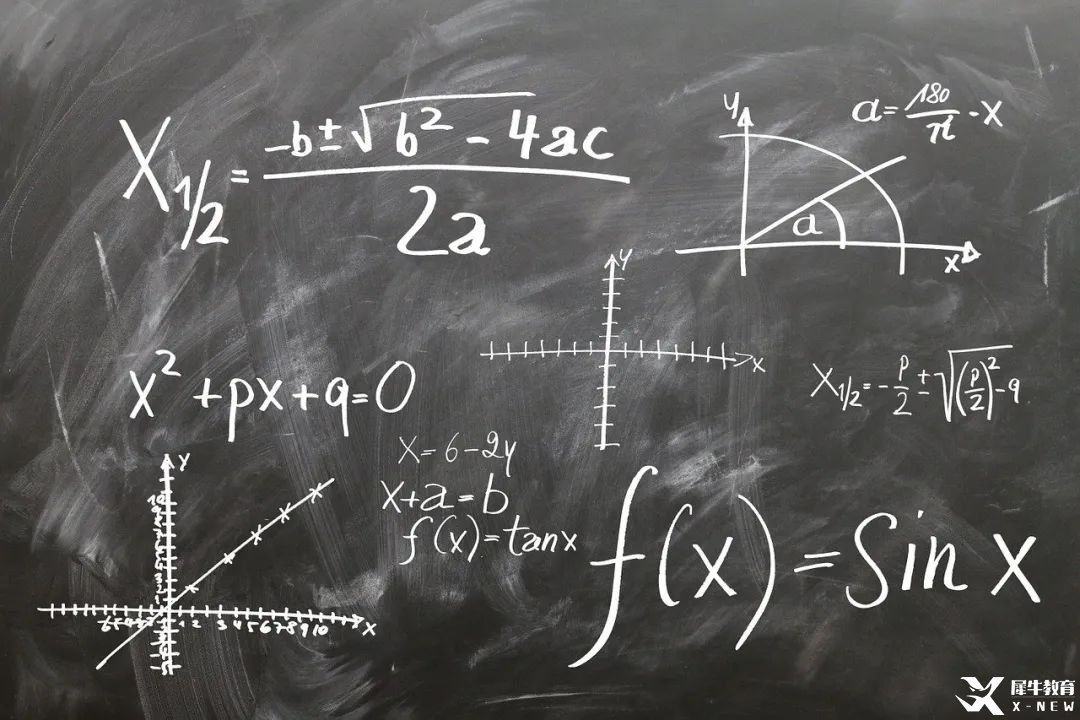 X1/2 = -b±√b² - 4ac / 2a
y
a = 180/π · x
a
x
y
x
x² + px + q = 0
x1/2 = -p/2 ± √(p/2)² - q
x = 6 - 2y
x + a = b
f(x) = tan x
f(x) = Sin x
y
x
1 2 3 4 5 6 7 8 9 10
犀牛教育
X-NEW